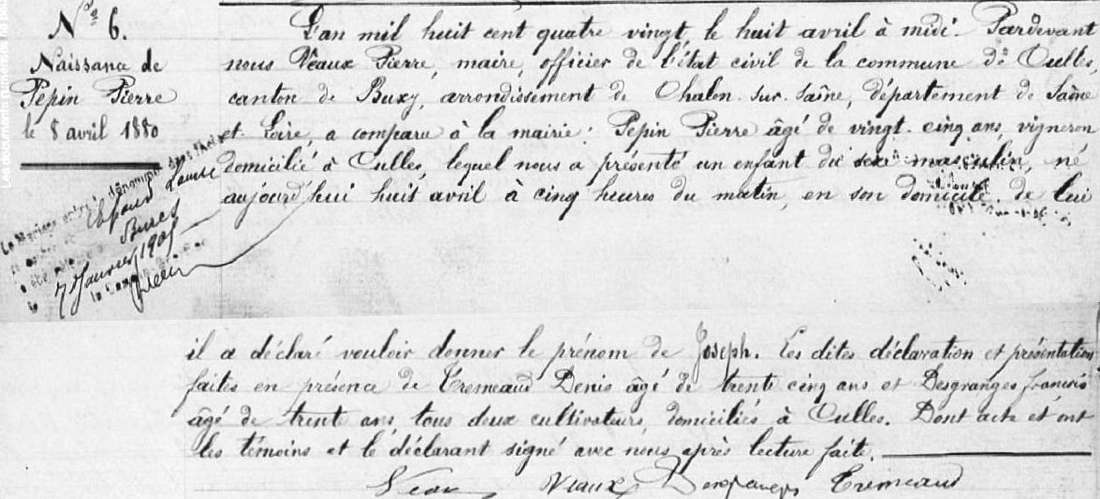 No 6.
Naissance de
Pepin Pierre
le 8 avril 1880
L'an mil huit cent quatre vingt, le huit avril à midi. Pardevant
nous Veaux Pierre, maire, officier de l'état civil de la commune de Culles,
canton de Buxy, arrondissement de Chalon-sur-Saône, département de Saône
et Loire, a comparu à la mairie: Pepin Pierre âgé de vingt-cinq ans, vigneron
domicilié à Culles, lequel nous a présenté un enfant du sexe masculin, né
aujourd'hui huit avril à cinq heures du matin, en son domicile, de lui
Buxy
7 Janvier 1905
il a déclaré vouloir donner le prénom de Joseph. Les dites déclaration et présentation
faites en présence de Tremeaud Denis âgé de trente cinq ans et Desgranges francois
âgé de trente ans, tous deux cultivateurs, domiciliés à Culles. Dont acte et ont
les témoins et le déclarant signé avec nous après lecture faite.
Veaux Desgranges Tremeaud